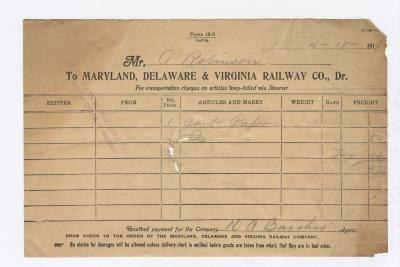 Form 19-S
4-17- 191
Mr. A Robinson
To MARYLAND, DELAWARE & VIRGINIA RAILWAY CO., Dr.
For transportation charges on articles way-billed via Steamer
SHIPPER FROM No. Pkgs. ARTICLES AND MARKS WEIGHT RATE FREIGHT
1 Paper
"
50
Tax
Received payment for the Company Agent.
DRAW CHECK TO THE ORDER OF THE MARYLAND, DELAWARE AND VIRGINIA RAILWAY COMPANY.
No claims for damages will be allowed unless delivery clerk is notified before goods are taken from wharf, that they are in bad order.